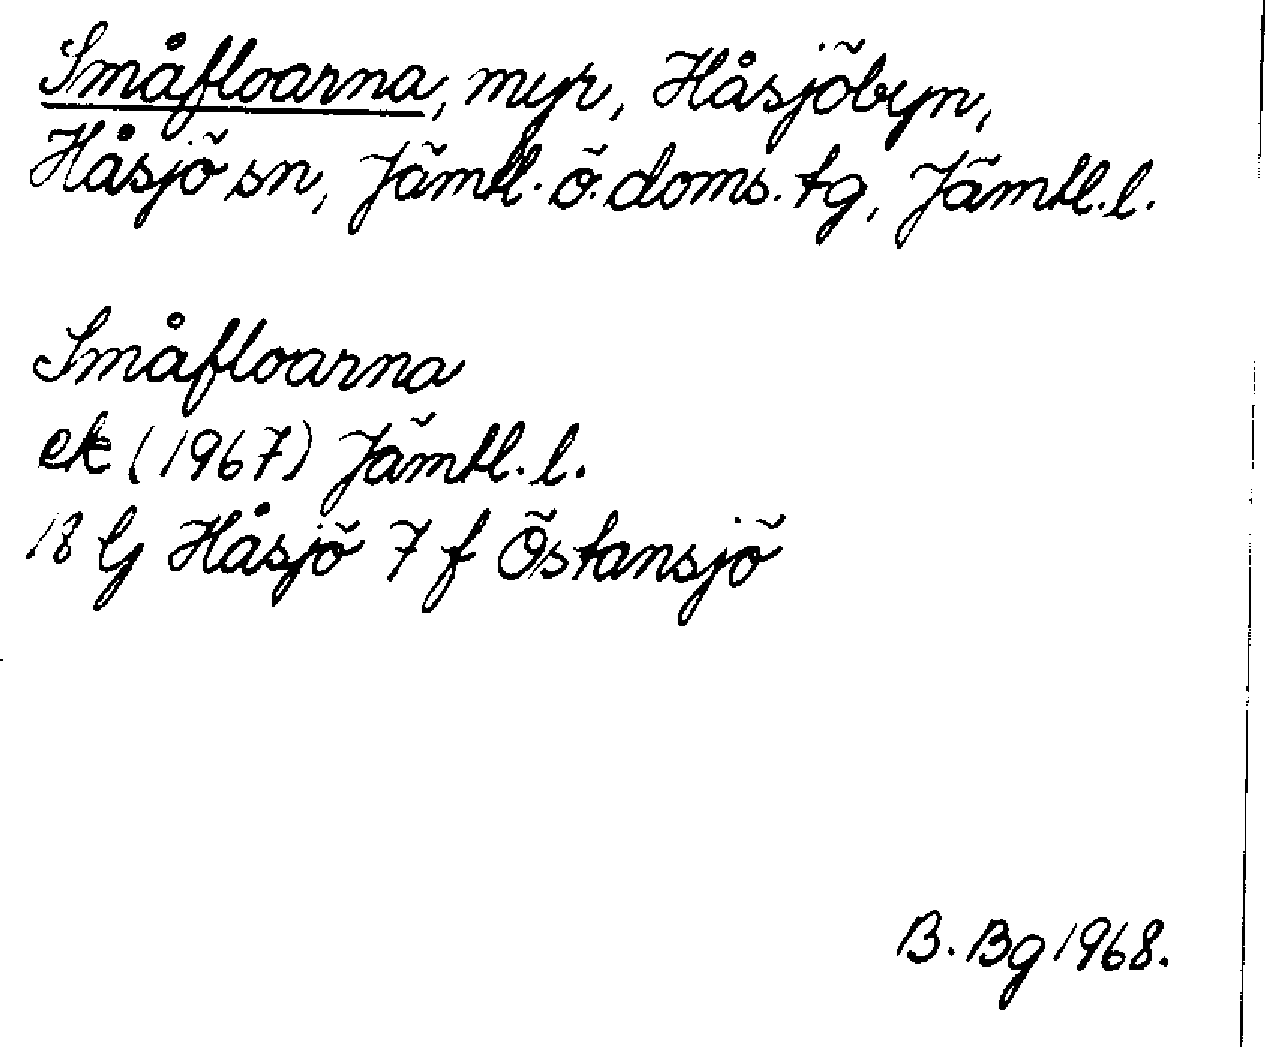 Småfloarna, myr, Håsjöbyn,
Håsjö sn, Jämtl. ö. doms. tg, Jämtl. l.
Småfloarna
ek (1967) Jämtl. l.
18 G Håsjö 7 f Östansjö
B. Bg 1968.